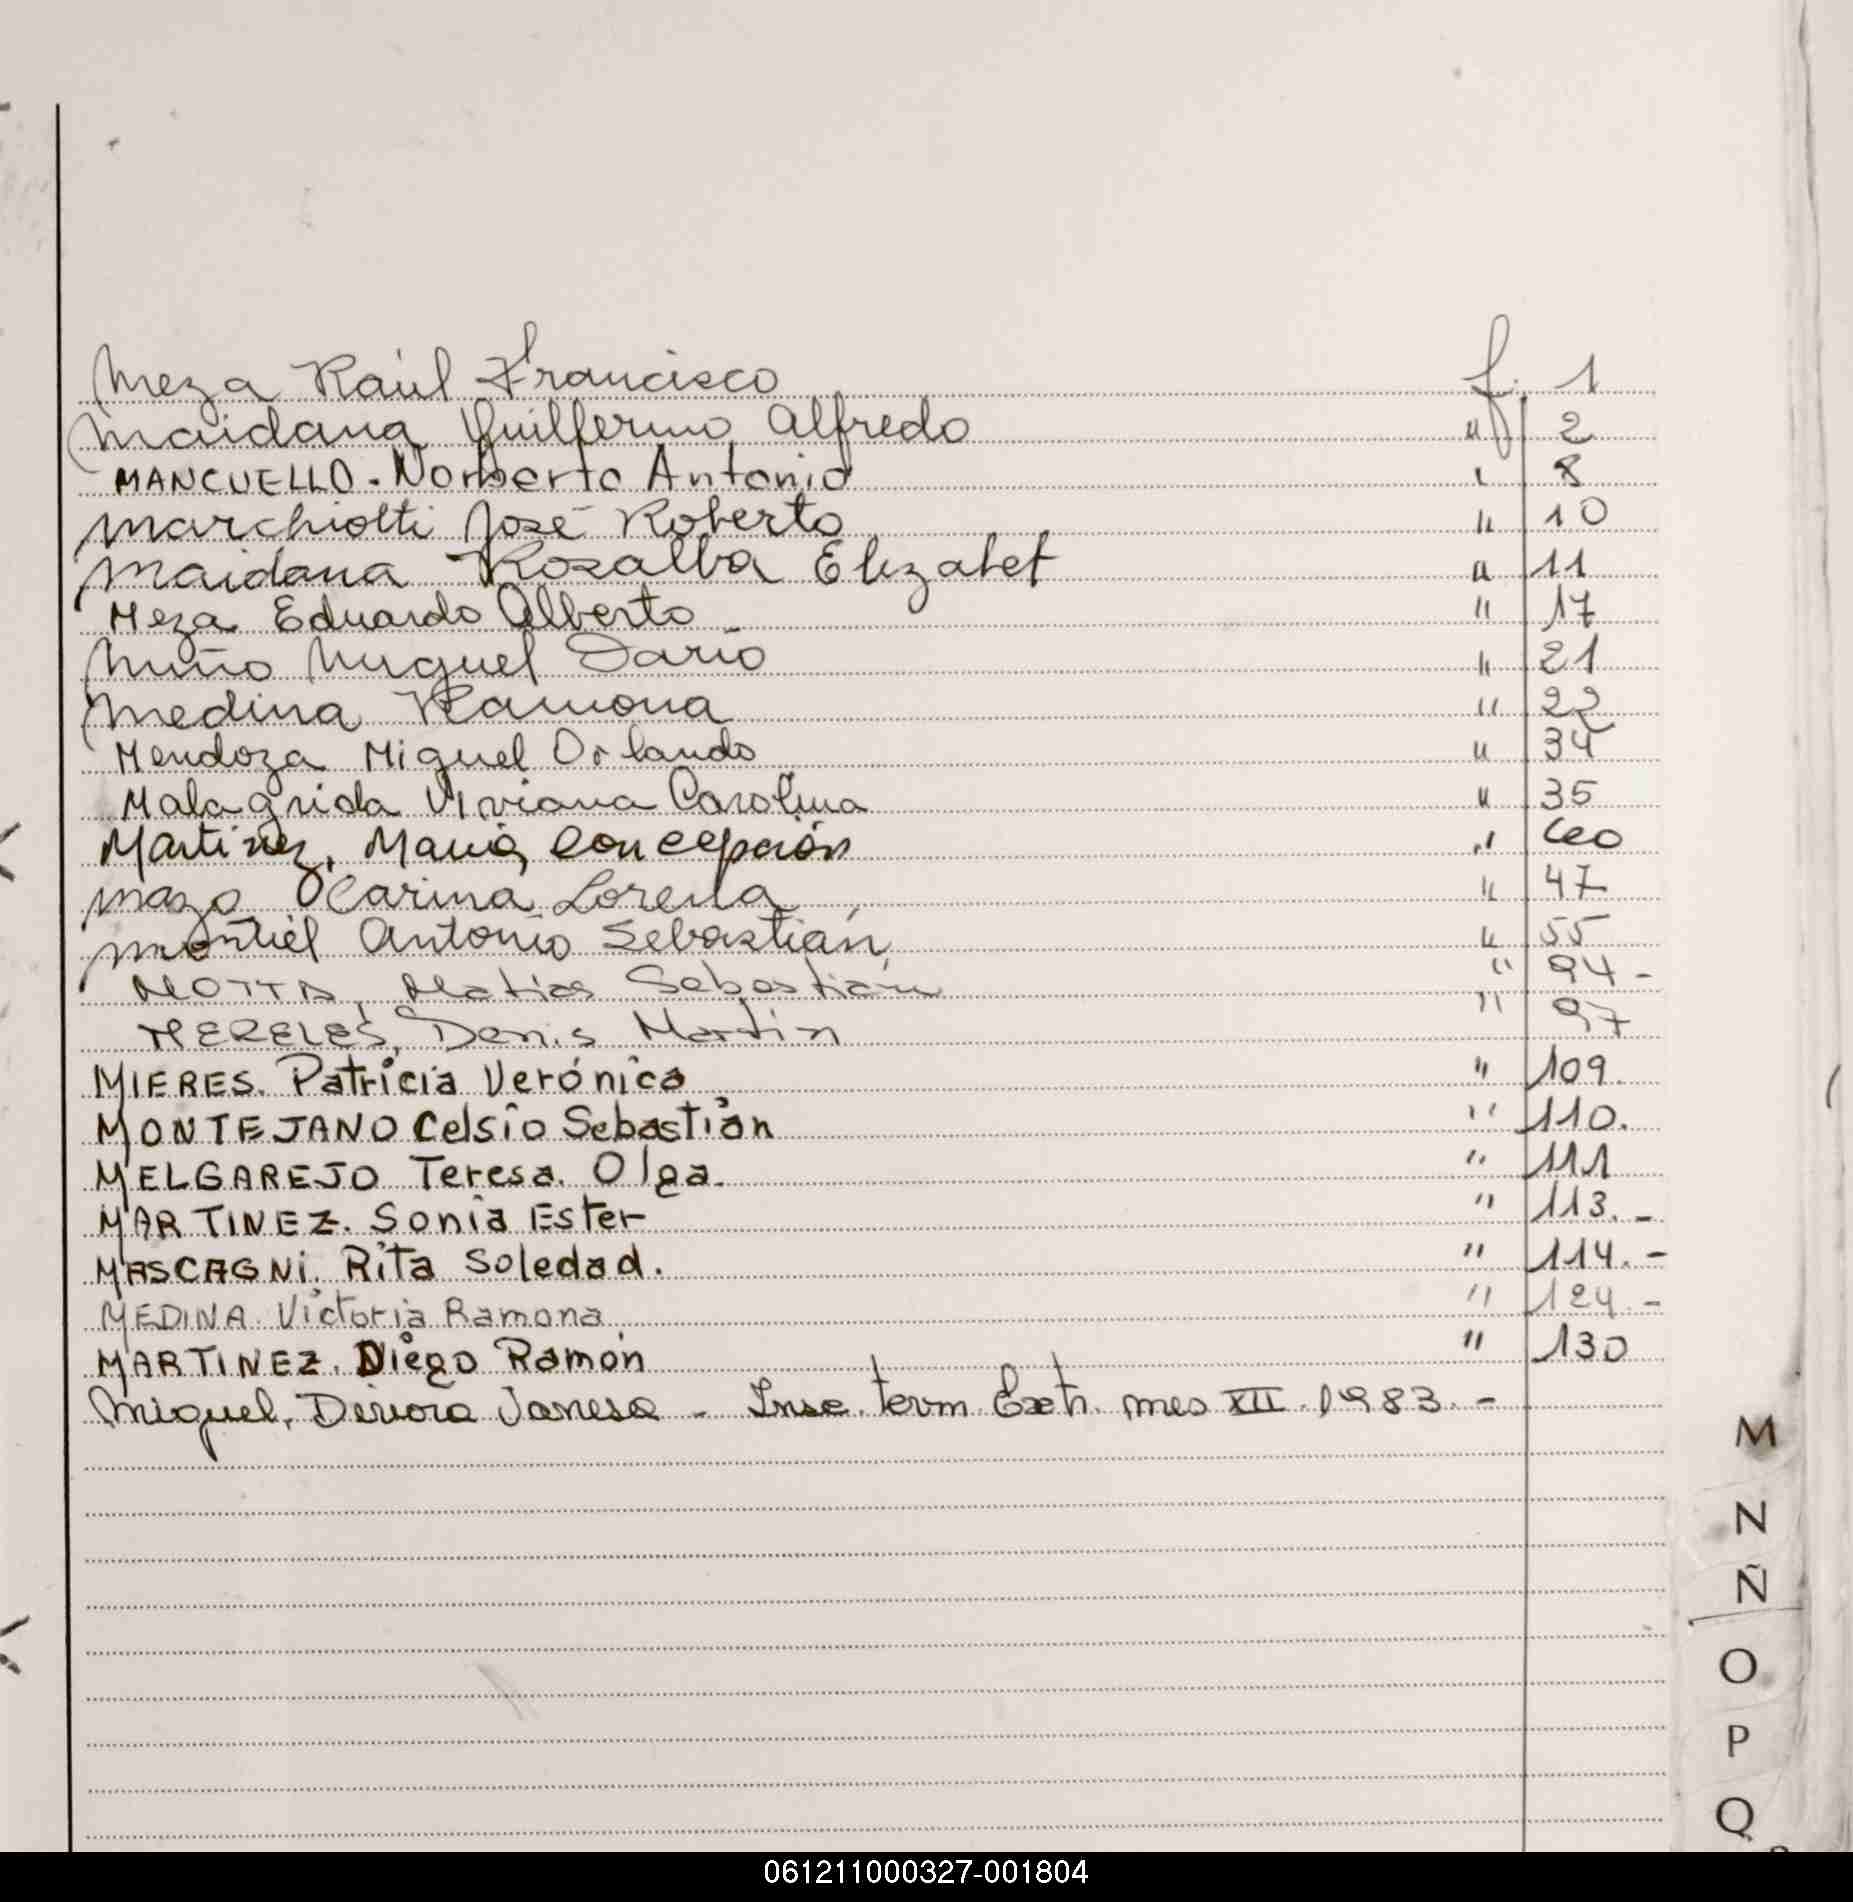 Meza Raúl Francisco f. 1
Maidana Guillermo Alfredo " 2
MANCUELLO. Norberto Antonio " 8
Marchiotti José Roberto " 10
Maidana Rosalba Elizabet " 11
Meza Eduardo Alberto " 17
Muño Miguel Darío " 21
Medina Ramona " 22
Mendoza Miguel Orlando " 34
Malagrida Viviana Carolina " 35
Martinez, María Concepción " 40
Mazo Carina Lorena " 47
Montiel Antonio Sebastián " 55
MOTTA, Matías Sebastián " 94-
MERELES, Denis Martin " 97
MIERES. Patricia Verónica " 109.
MONTEJANO Celsio Sebastián " 110.
MELGAREJO Teresa. Olga. " 111
MARTINEZ. Sonia Ester " 113.-
MASCAGNi. Rita Soledad. " 114.-
MEDINA. Victoria Ramona " 124.-
MARTINEZ. Diego Ramón " 130
Miguel, Devora Janesa - Insc. term Extr. mes XII. 1983.-
M
N
Ñ
O
P
Q
061211000327-001804